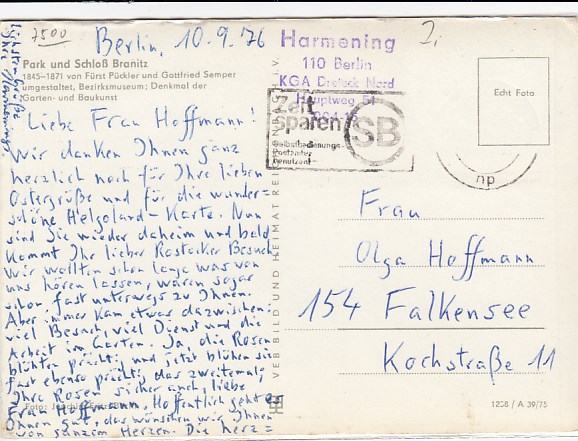 7500
Berlin, 10.9.76
2,
Park und Schloß Branitz
1845–1871 von Fürst Pückler und Gottfried Semper
umgestaltet, Bezirksmuseum; Denkmal der
Garten- und Baukunst
Liebe Frau Hoffmann!
Wir danken Ihnen ganz
herzlich noch für Ihre lieben
Ostergrüße und für die wunder=
schöne Helgoland-Karte. Nun
sind Sie wieder daheim und bald
kommt Ihr lieber Rostocker Besuch
Wir wollten schon lange was von
uns hören lassen, waren sogar
schon fast unterwegs zu Ihnen.
Aber immer kam etwas dazwischen:
viel Besuch, viel Dienst und die
Arbeit im Garten. Ja, die Rosen
blühten prächtig und jetzt blühen sie
fast ebenso prächtig das zweitemal,
Ihre Rosen sicher auch, liebe
Frau Hoffmann, Hoffentlich geht es
Ihnen gut, das wünschen wir Ihnen
von ganzem Herzen. Die herz=
lichsten Grüße
Ihre Harmenings.
Foto:
Harmening
110 Berlin
KGA Dreieck Nord
Hauptweg 51
Zeit
sparen
SB
Selbstbedienungs-
postämter
benutzen!
VEB BILD UND HEIMAT REICHENBACH I. V.
Echt Foto
np
Frau
Olga Hoffmann
154 Falkensee
Kochstraße 11
1258 / A 39/75